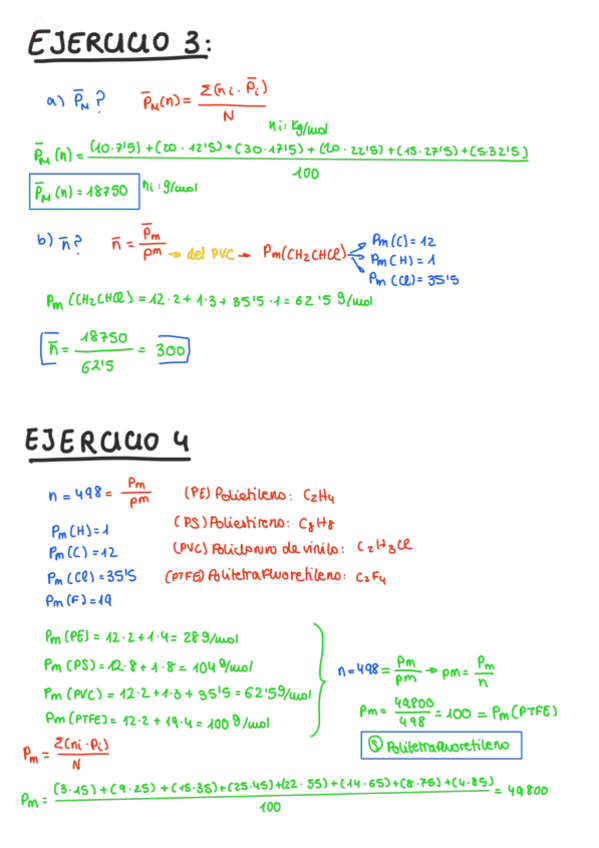 EJERCICIO 3:
a) P̅M? P̅M(n) = Σ(ni · P̅i) / N
ni: Kg/mol
P̅M (n) = (10·7'5) + (20 · 12'5) + (30·17'5) + (20 · 22'5) + (15·27'5) + (5·32'5) / 100
P̅M (n) = 18750 ni: g/mol
b) n̅? n̅ = P̅m / pm → del PVC → Pm(CH2CHCl) Pm(C) = 12
Pm(H) = 1
Pm (Cl) = 35'5
Pm (CH2CHCl) = 12·2 + 1·3 + 35'5 ·1 = 62'5 g/mol
n̅ = 18750 / 62'5 = 300
EJERCICIO 4
n = 498 = Pm / pm (PE) Polietileno: C2H4
(PS) Poliestireno: C8H8
Pm (H) = 1
Pm (C) = 12 (PVC) Policloruro de vinilo: C2H3Cl
Pm (Cl) = 35'5 (PTFE) Politetrafluoretileno: C2F4
Pm (F) = 19
Pm (PE) = 12·2 + 1·4 = 28 g/mol
Pm (PS) = 12·8 + 1·8 = 104 g/mol n = 498 = Pm / pm → pm = Pm / n
Pm (PVC) = 12·2 + 1·3 + 35'5 = 62'5 g/mol
Pm (PTFE) = 12·2 + 19·4 = 100 g/mol pm = 49800 / 498 = 100 = Pm (PTFE)
Politetrafluoretileno
Pm = Σ(ni · Pi) / N
Pm = (3·15) + (9·25) + (15·35) + (25·45) + (22·55) + (14·65) + (8·75) + (4·85) / 100 = 49800